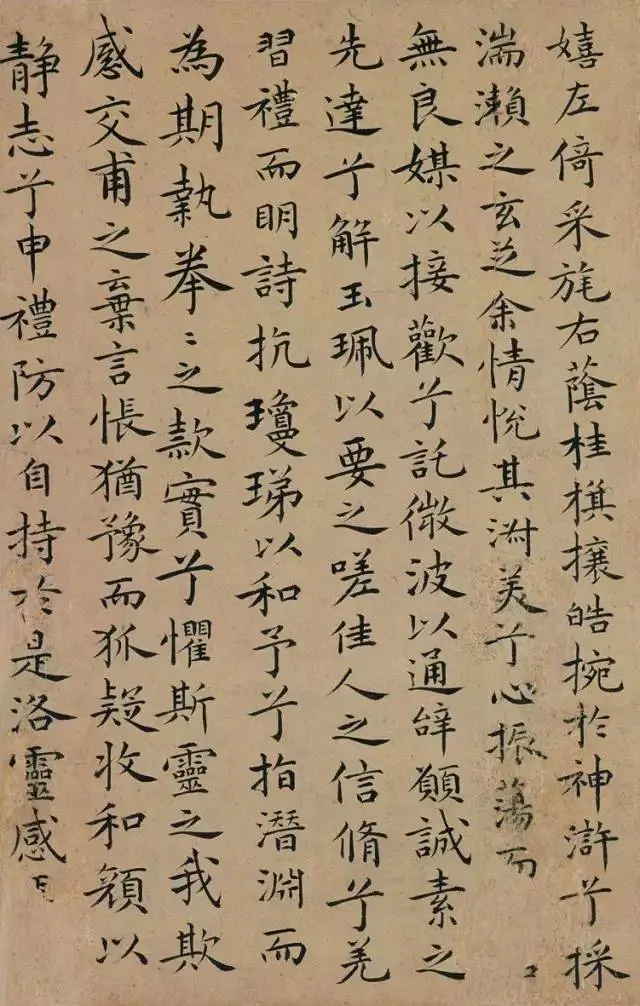 嬉左倚采旄右蔭桂旗攘皓捥於神滸兮採
湍瀨之玄芝余情悅其淑美兮心振蕩而
無良媒以接歡兮託微波以通辭願誠素之
先達兮解玉珮以要之嗟佳人之信脩兮羌
習禮而明詩抗瓊珶以和予兮指潛淵而
為期執拳〻之款實兮懼斯靈之我欺
感交甫之棄言悵猶豫而狐疑收和顏以
静志兮申禮防以自持於是洛靈感